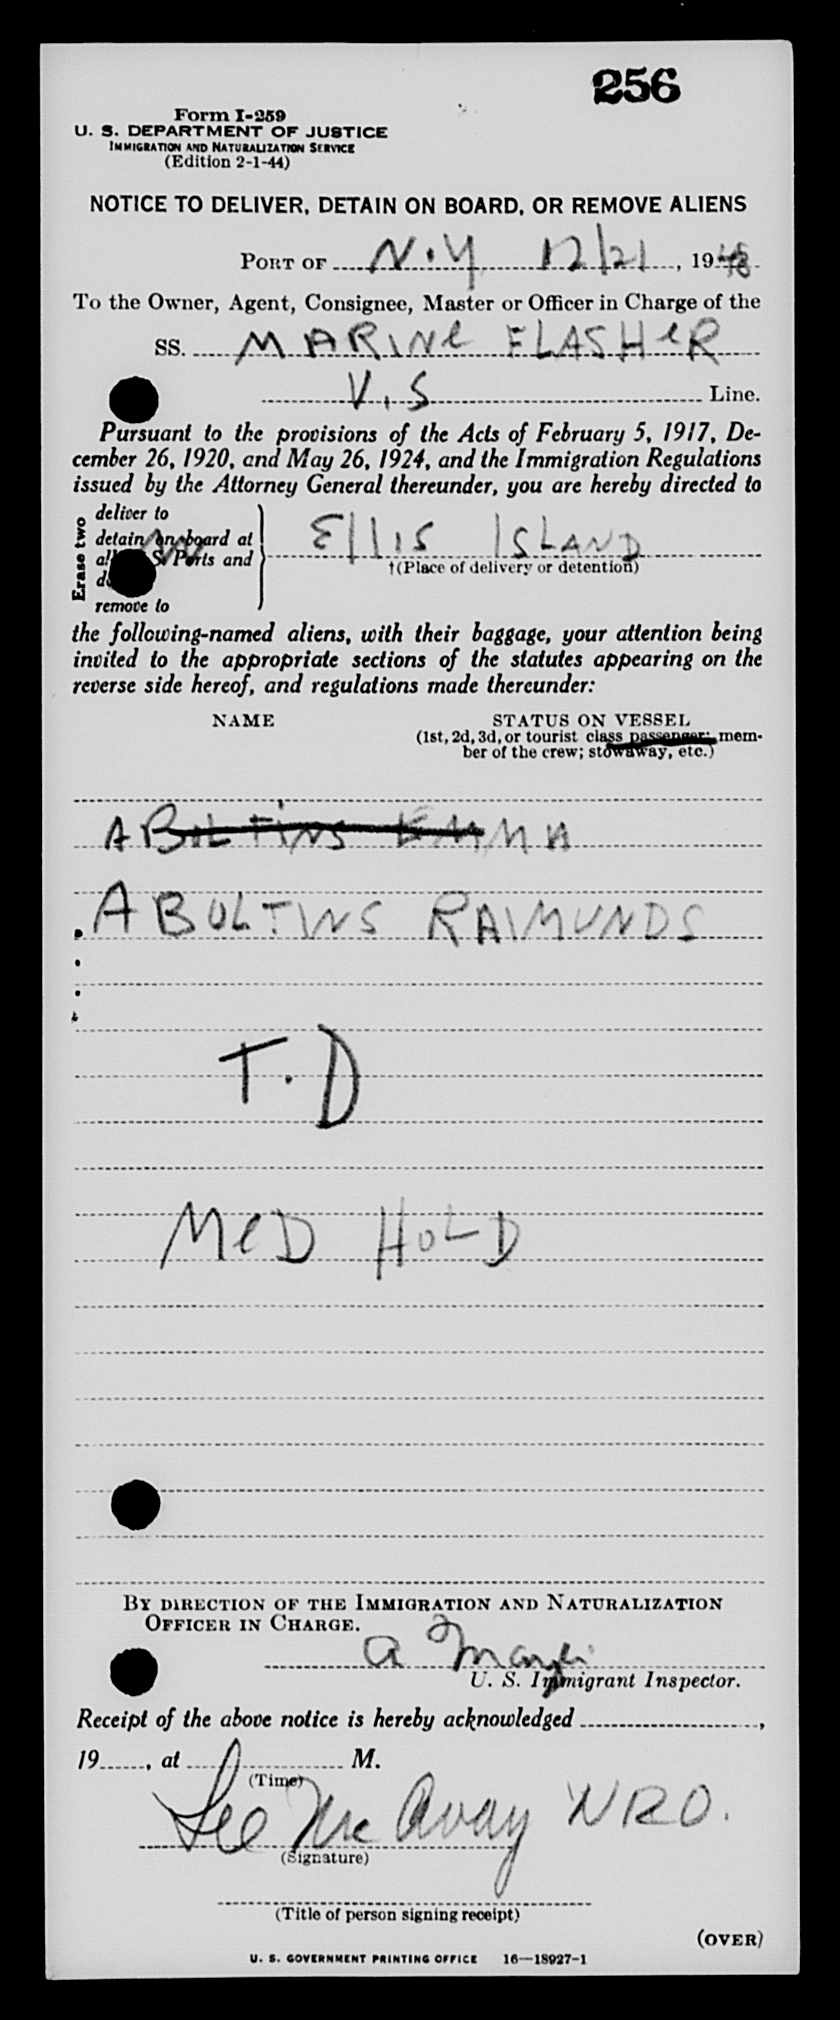 256
Form I-259
U. S. DEPARTMENT OF JUSTICE
IMMIGRATION AND NATURALIZATION SERVICE
(Edition 2-1-44)
NOTICE TO DELIVER, DETAIN ON BOARD, OR REMOVE ALIENS
PORT OF N.Y 12/21, 1948
To the Owner, Agent, Consignee, Master or Officer in Charge of the
SS. MARINE FLASHER
V.S Line.
Pursuant to the provisions of the Acts of February 5, 1917, De-
cember 26, 1920, and May 26, 1924, and the Immigration Regulations
issued by the Attorney General thereunder, you are hereby directed to
Erase two
deliver to
detain on board at
all S. Ports and
remove to
Ellis ISLAND
†(Place of delivery or detention)
the following-named aliens, with their baggage, your attention being
invited to the appropriate sections of the statutes appearing on the
reverse side hereof, and regulations made thereunder:
NAME STATUS ON VESSEL
(1st, 2d, 3d, or tourist class passenger; mem-
ber of the crew; stowaway, etc.)
ABOLTINS EMMA
ABOLTINS RAIMUNDS
T. D
MED HOLD
BY DIRECTION OF THE IMMIGRATION AND NATURALIZATION
OFFICER IN CHARGE.
U. S. Immigrant Inspector.
Receipt of the above notice is hereby acknowledged ,
19 , at M.
(Time)
Leo Mc Avay NRO.
(Signature)
(Title of person signing receipt)
(OVER)
U. S. GOVERNMENT PRINTING OFFICE 16—18927-1